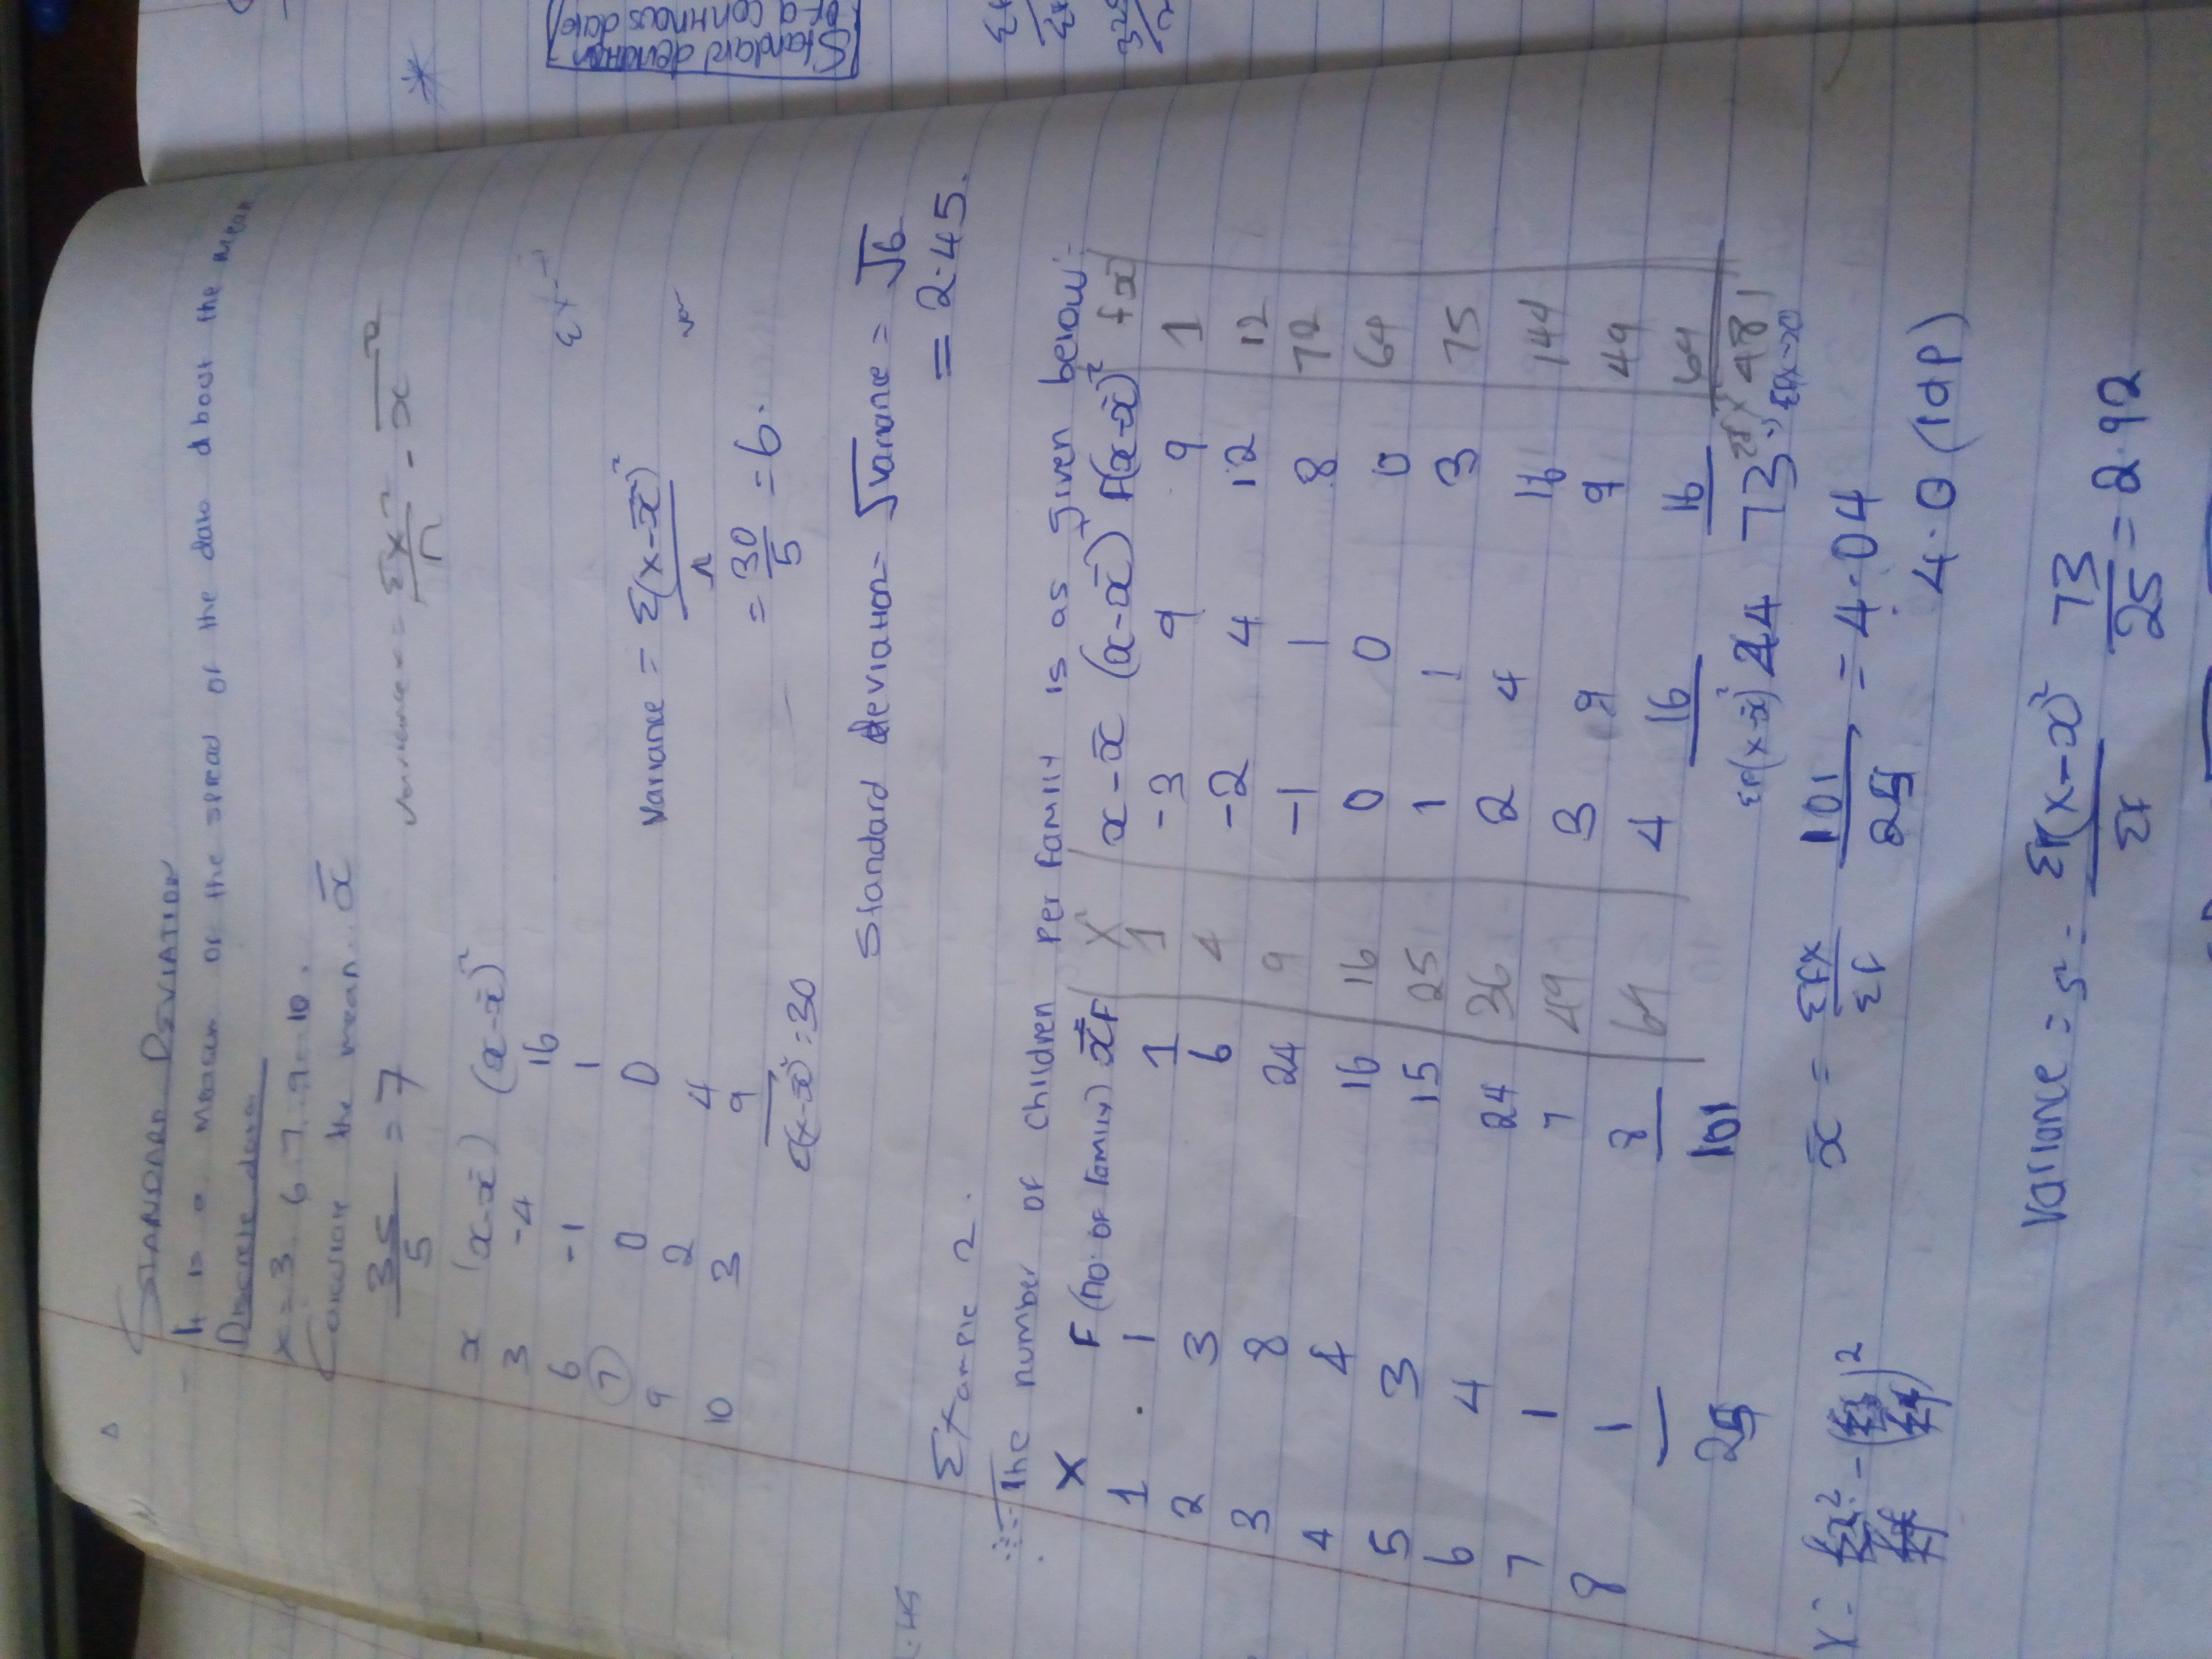 STANDARD DEVIATION
- It is a measure of the spread of the data about the mean
Discrete data
x = 3, 6, 7, 9, 10.
Calculate the mean x̄
35/5 = 7
variance = Σx²/n - x̄²
x (x-x̄) (x-x̄)²
3 -4 16
6 -1 1
7 0 0
9 2 4
10 3 9
Σ(x-x̄)² = 30
Variance = Σ(x-x̄)²/n
= 30/5 = 6.
Standard deviation = √variance = √6
= 2.45.
Example 2.
The number of children per family is as given below:-
X F (no. of family) xF X² x-x̄ (x-x̄)² F(x-x̄)² fx²
1 1 1 1 -3 9 9 1
2 3 6 4 -2 4 12 12
3 8 24 9 -1 1 8 72
4 4 16 16 0 0 0 64
5 3 15 25 1 1 3 75
6 4 24 36 2 4 16 144
7 1 7 49 3 9 9 49
8 1 8 64 4 16 16 64
25 101 Σf(x-x̄)² 44 73 Σfx² 481
x̄ = Σfx/Σf 101/25 = 4.04
4.0 (1dp)
Variance = s² = Σf(x-x̄)²/Σf 73/25 = 2.92
Standard deviation
of a continous data